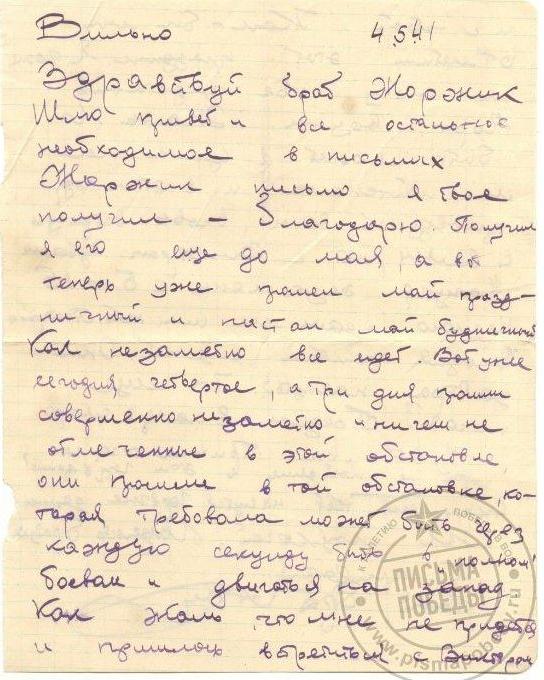 Вильно 4.5.41
Здравствуй брат Жоржик
Шлю привет и все остальное
необходимое в письмах
Жоржик письмо я твое
получил – благодарю. Получил
я его еще до мая, а вот
теперь уже прошел май празд-
ничный и настал май будничный
Как незаметно все идет. Вот уже
сегодня четвертое, а три дня прошли
совершенно незаметно и ничем не
отмеченные в этой обстановке,
они прошли в той обстановке, ко-
торая требовала может быть через
каждую секунду быть в „полном
боевом“ и двигаться на запад
Как жаль, что мне не придется
и пришлось встретиться с Виктором
К 70-ЛЕТИЮ ПОБЕДЫ В ВОВ
ПИСЬМА
ПОБЕДЫ
www.pismapobedy.ru